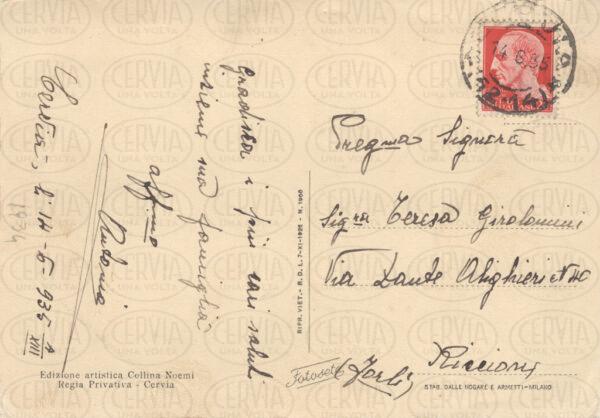 Cervia, li 14-6-935 A
XIII
1934
Gradisca i più cari saluti
insieme sua famiglia
aff.mo
Edizione artistica Collina Noemi
Regia Privativa - Cervia
RIPR. VIET. - R. D. L. 7-XI-1925 - N. 1950
14.6.35
Pregma Signora
Sigra Teresa Girolomini
Via Dante Alighieri N° 40
Riccione
(Forlì)
Fotosete
STAB. DALLE NOGARE E ARMETTI - MILANO
CERVIA
UNA VOLTA